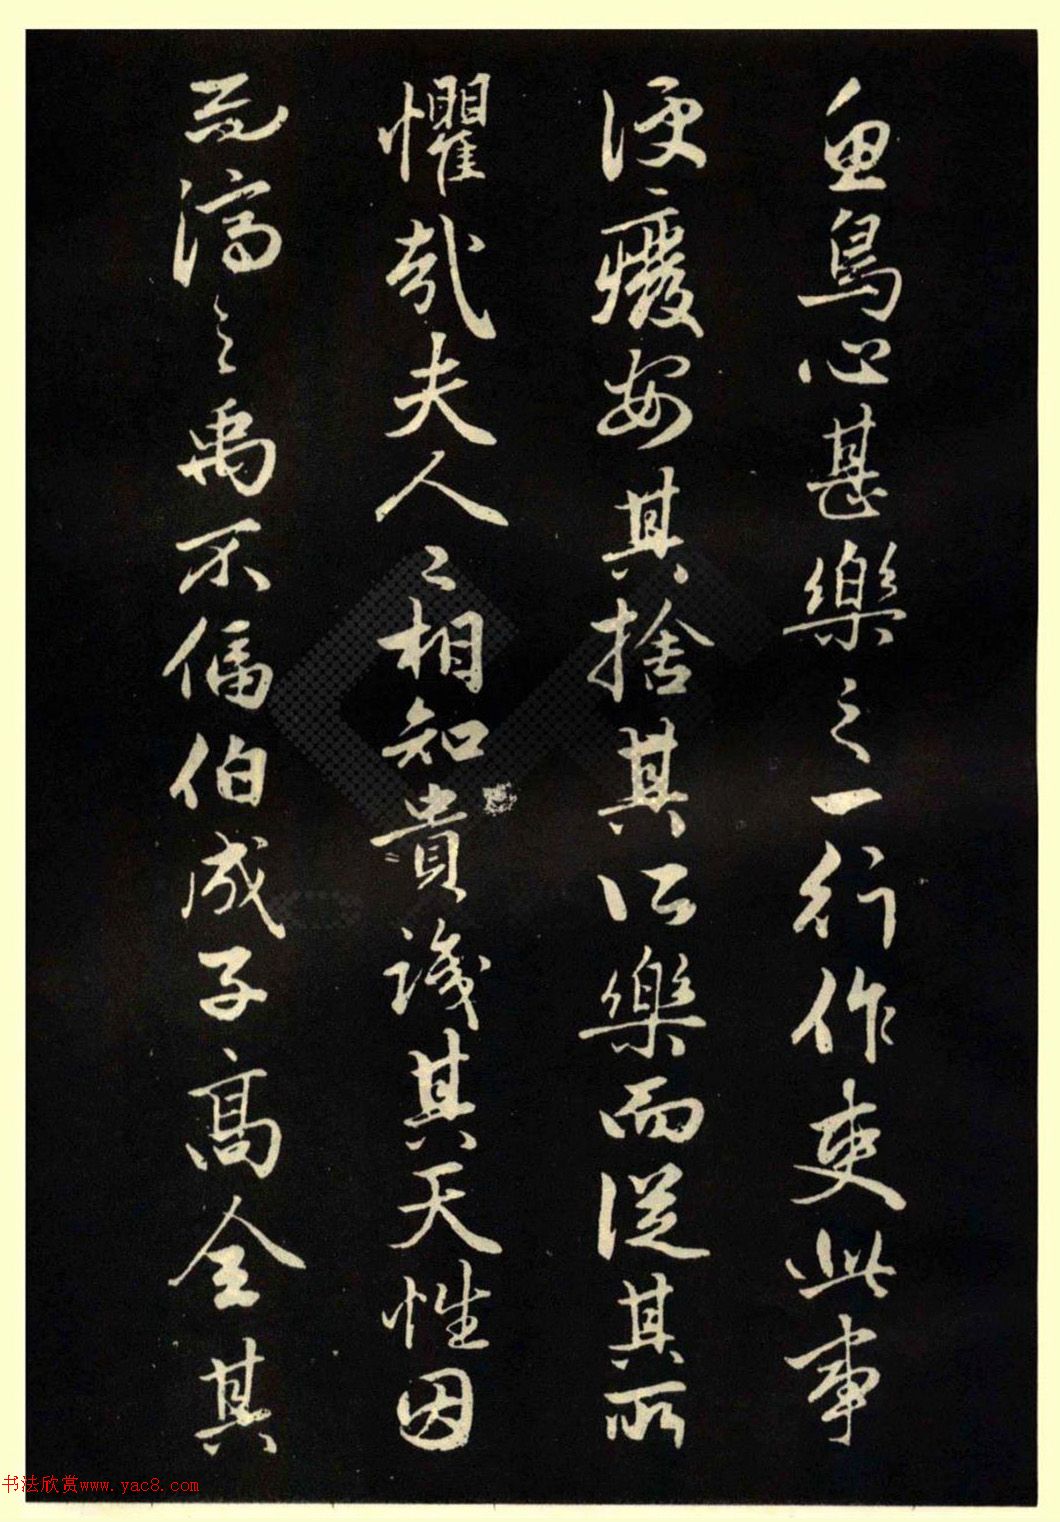 魚鳥心甚樂之一行作吏此事
便廢安其捨其所樂而從其所
懼哉夫人之相知貴識其天性因
而濟之禹不偪伯成子高全其
书法欣赏www.yac8.com